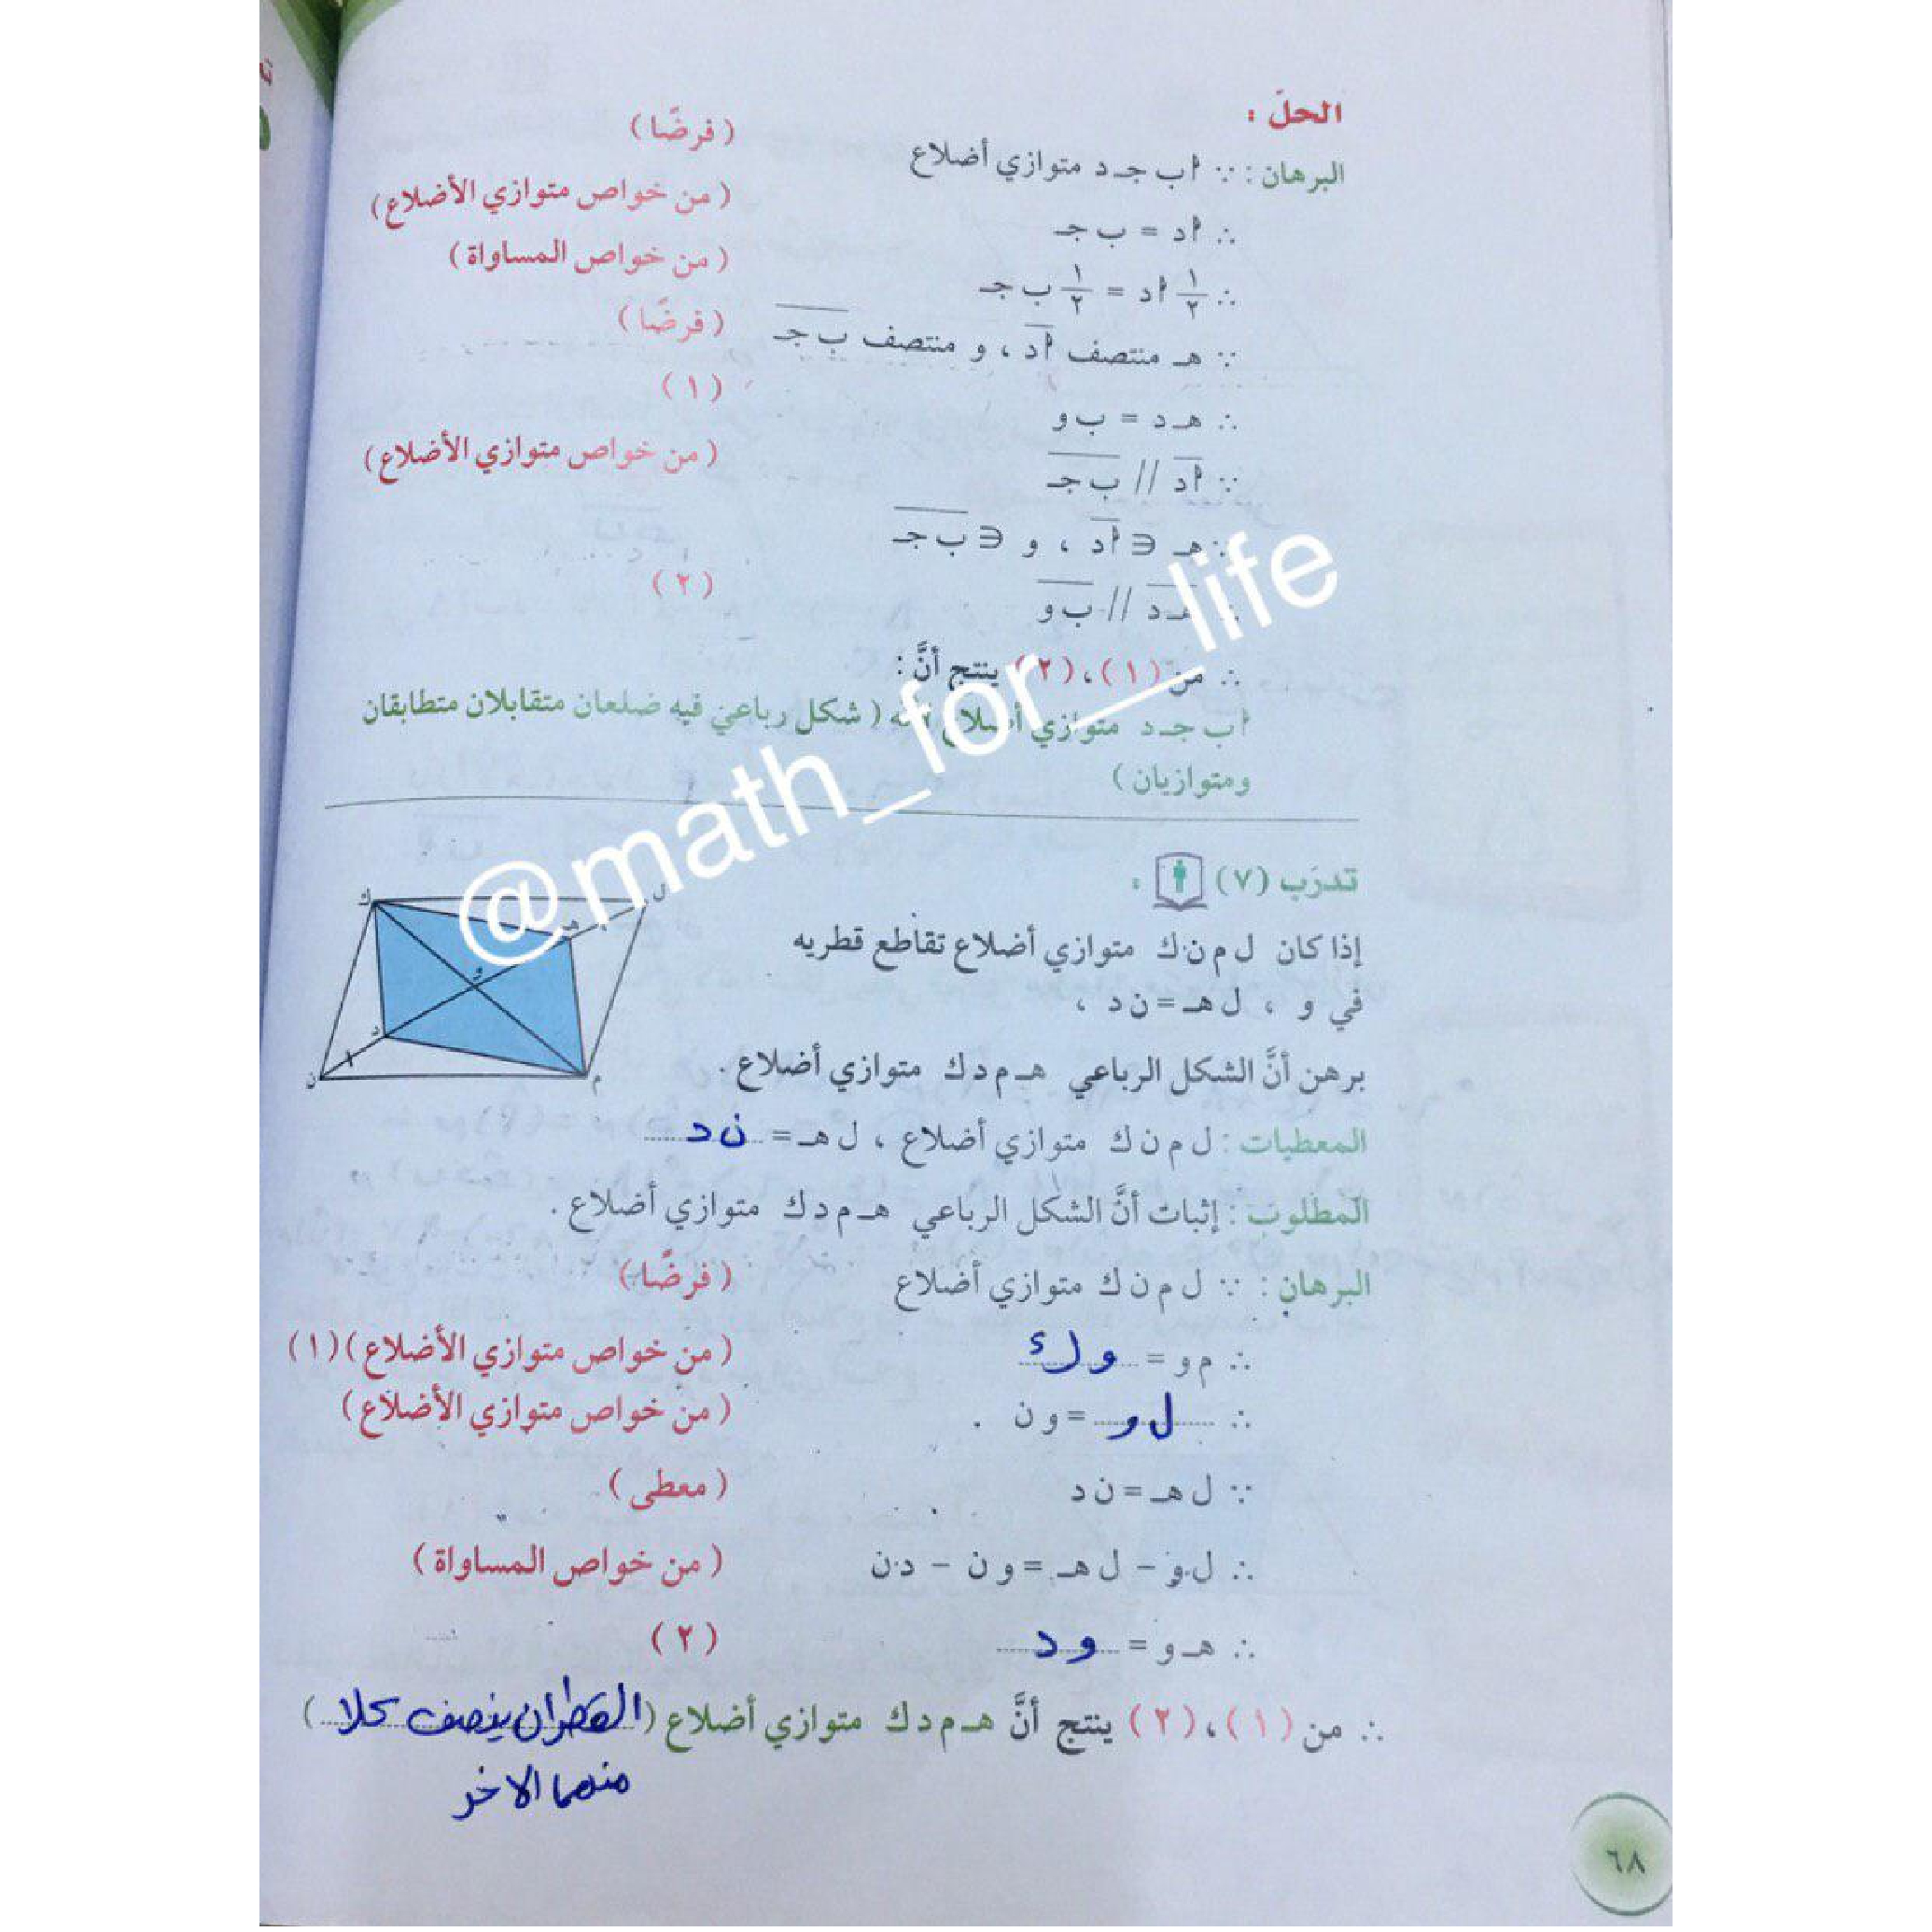 الحلّ :
البرهان : ∵ أ ب جـ د متوازي أضلاع (فرضًا)
∴ أ د = ب جـ (من خواص متوازي الأضلاع)
∴ ١/٢ أ د = ١/٢ ب جـ (من خواص المساواة)
∵ هـ منتصف أ د ، و منتصف ب جـ (فرضًا)
∴ هـ د = ب و (١)
∵ أ د // ب جـ (من خواص متوازي الأضلاع)
∵ هـ ∈ أ د ، و ∈ ب جـ
∴ هـ د // ب و (٢)
∴ من (١) ، (٢) ينتج أنَّ :
أ ب جـ د متوازي أضلاع لأنه (شكل رباعي فيه ضلعان متقابلان متطابقان
ومتوازيان)
@math_for__life
تدرّب (٧) :
ك هـ ل و د ن م
إذا كان ل م ن ك متوازي أضلاع تقاطع قطريه
في و ، ل هـ = ن د ،
برهن أنَّ الشكل الرباعي هـ م د ك متوازي أضلاع .
المعطيات : ل م ن ك متوازي أضلاع ، ل هـ = ن د
المطلوب : إثبات أنَّ الشكل الرباعي هـ م د ك متوازي أضلاع .
البرهان : ∵ ل م ن ك متوازي أضلاع (فرضًا)
∴ م و = و ك (من خواص متوازي الأضلاع) (١)
∴ ل و = و ن (من خواص متوازي الأضلاع)
∵ ل هـ = ن د (معطى)
∴ ل و - ل هـ = و ن - د ن (من خواص المساواة)
∴ هـ و = و د (٢)
∴ من (١) ، (٢) ينتج أنَّ هـ م د ك متوازي أضلاع (القطران ينصف كلا)
منهما الاخر
٦٨